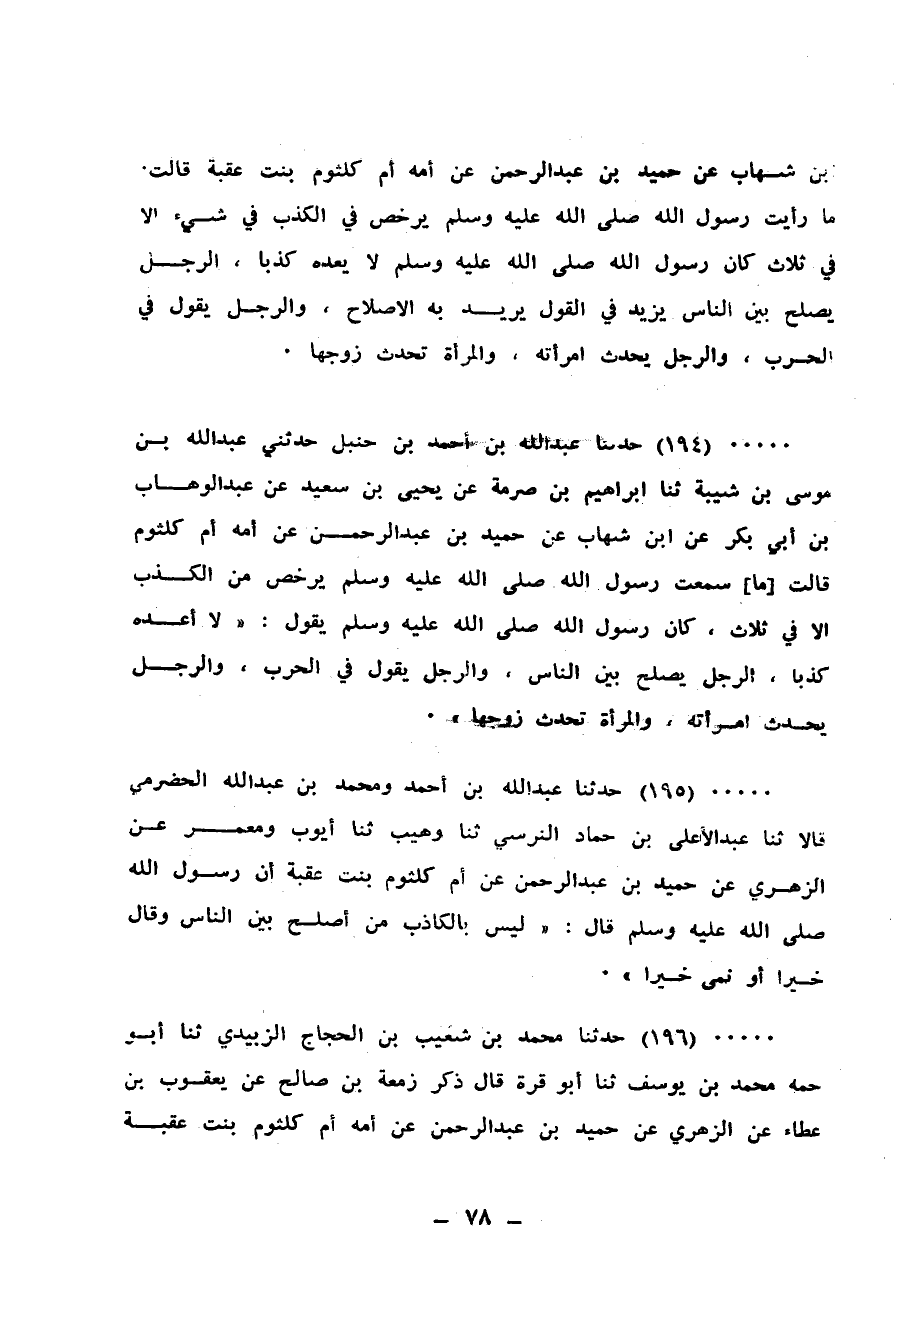 بن شهاب عن حميد بن عبدالرحمن عن أمه أم كلثوم بنت عقبة قالت.
ما رأيت رسول الله صلى الله عليه وسلم يرخص في الكذب في شيء الا
في ثلاث كان رسول الله صلى الله عليه وسلم لا يعده كذبا ، الرجل
يصلح بين الناس يزيد في القول يريد به الاصلاح ، والرجل يقول في
الحرب ، والرجل يحدث امرأته ، والمرأة تحدث زوجها .
..... (١٩٤) حدثنا عبدالله بن أحمد بن حنبل حدثني عبدالله بن
موسى بن شيبة ثنا ابراهيم بن صرمة عن يحيى بن سعيد عن عبدالوهاب
بن أبي بكر عن ابن شهاب عن حميد بن عبدالرحمن عن أمه أم كلثوم
قالت [ما] سمعت رسول الله صلى الله عليه وسلم يرخص من الكذب
الا في ثلاث ، كان رسول الله صلى الله عليه وسلم يقول : « لا أعده
كذبا ، الرجل يصلح بين الناس ، والرجل يقول في الحرب ، والرجل
يحدث امرأته ، والمرأة تحدث زوجها » .
..... (١٩٥) حدثنا عبدالله بن أحمد ومحمد بن عبدالله الحضرمي
قالا ثنا عبدالأعلى بن حماد النرسي ثنا وهيب ثنا أيوب ومعمر عن
الزهري عن حميد بن عبدالرحمن عن أم كلثوم بنت عقبة أن رسول الله
صلى الله عليه وسلم قال : « ليس بالكاذب من أصلح بين الناس وقال
خيرا أو نمى خيرا » .
..... (١٩٦) حدثنا محمد بن شعيب بن الحجاج الزبيدي ثنا أبو
حمه محمد بن يوسف ثنا أبو قرة قال ذكر زمعة بن صالح عن يعقوب بن
عطاء عن الزهري عن حميد بن عبدالرحمن عن أمه أم كلثوم بنت عقبة
— ٧٨ —